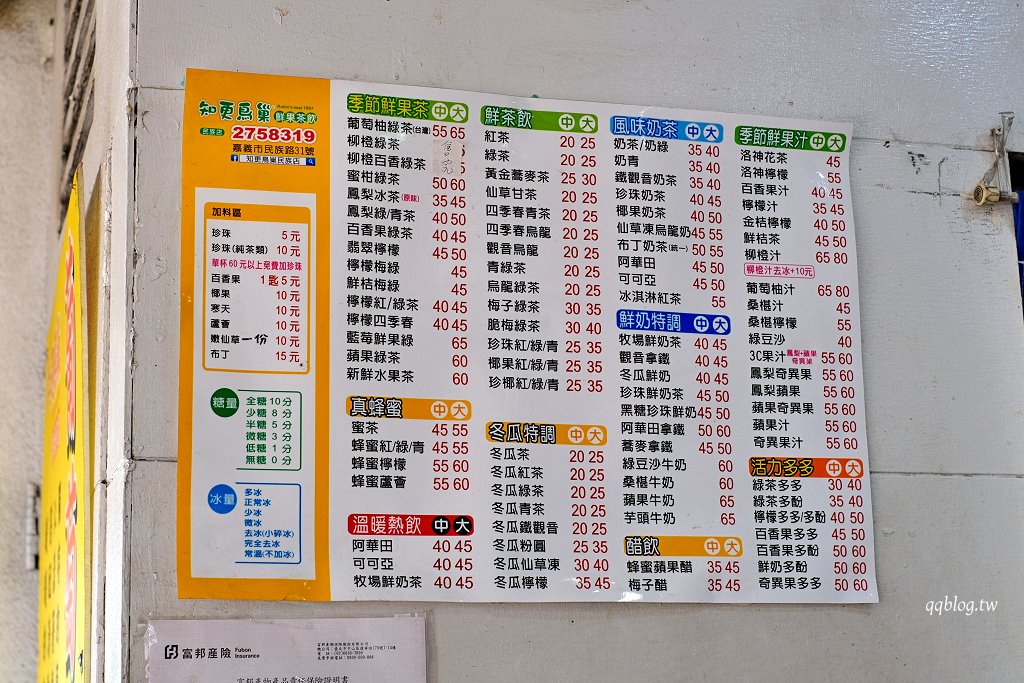 知更鳥巢 Robin's nest 1997
鮮果茶飲
民族店 2758319
嘉義市民族路31號
知更鳥巢民族店
加料區
珍珠 5元
珍珠(純茶類) 10元
單杯60元以上免費加珍珠
百香果 1匙5元
椰果 10元
寒天 10元
蘆薈 10元
嫩仙草一份 10元
布丁 15元
糖量
全糖10分
少糖 8分
半糖 5分
微糖 3分
低糖 1分
無糖 0分
冰量
多冰
正常冰
少冰
微冰
去冰(小碎冰)
完全去冰
常溫(不加冰)
季節鮮果茶 中 大
葡萄柚綠茶(台灣) 55 65
柳橙綠茶
柳橙百香綠茶
蜜柑綠茶 50 60
鳳梨冰茶(原味) 35 45
鳳梨綠/青茶 40 50
百香果綠茶 40 45
翡翠檸檬 45 50
檸檬梅綠 45
鮮桔梅綠 45
檸檬紅/綠茶 40 45
檸檬四季春 40 45
藍莓鮮果綠 65
蘋果綠茶 60
新鮮水果茶 60
真蜂蜜 中 大
蜜茶 45 55
蜂蜜紅/綠/青 45 55
蜂蜜檸檬 55 60
蜂蜜蘆薈 55 60
溫暖熱飲 中 大
阿華田 40 45
可可亞 40 45
牧場鮮奶茶 40 45
鮮茶飲 中 大
紅茶 20 25
綠茶 20 25
黃金蕎麥茶 25 30
仙草甘茶 20 25
四季春青茶 20 25
四季春烏龍 20 25
觀音烏龍 20 25
青綠茶 20 25
烏龍綠茶 20 25
梅子綠茶 30 35
脆梅綠茶 30 40
珍珠紅/綠/青 25 35
椰果紅/綠/青 25 35
珍椰紅/綠/青 25 35
冬瓜特調 中 大
冬瓜茶 20 25
冬瓜紅茶 20 25
冬瓜綠茶 20 25
冬瓜青茶 20 25
冬瓜鐵觀音 20 25
冬瓜粉圓 25 35
冬瓜仙草凍 30 40
冬瓜檸檬 35 45
風味奶茶 中 大
奶茶/奶綠 35 40
奶青 35 40
鐵觀音奶茶 35 40
珍珠奶茶 40 45
椰果奶茶 40 50
仙草凍烏龍奶 45 55
布丁奶茶(統一) 50 55
阿華田 45 50
可可亞 45 50
冰淇淋紅茶 55
鮮奶特調 中 大
牧場鮮奶茶 40 45
觀音拿鐵 40 45
冬瓜鮮奶 40 45
珍珠鮮奶茶 45 50
黑糖珍珠鮮奶 45 50
阿華田拿鐵 50 60
蕎麥拿鐵 45 50
綠豆沙牛奶 60
桑椹牛奶 60
蘋果牛奶 65
芋頭牛奶 65
醋飲 中 大
蜂蜜蘋果醋 35 45
梅子醋 35 45
季節鮮果汁 中 大
洛神花茶 45
洛神檸檬 55
百香果汁 40 45
檸檬汁 35 45
金桔檸檬 40 50
鮮桔茶 45 50
柳橙汁 65 80
柳橙汁去冰+10元
葡萄柚汁 65 80
桑椹汁 45
桑椹檸檬 55
綠豆沙 40
3C果汁 鳳梨+蘋果 奇異果 55 60
鳳梨奇異果 55 60
鳳梨蘋果 55 60
蘋果奇異果 55 60
蘋果汁 55 60
奇異果汁 55 60
活力多多 中 大
綠茶多多 30 40
綠茶多酚 35 40
檸檬多多/多酚 40 50
百香果多多 45 50
百香果多酚 50 60
鮮奶多酚 50 60
奇異果多多 50 60
qqblog.tw
富邦產險 Fubon Insurance
富邦產物產品責任保險證明書